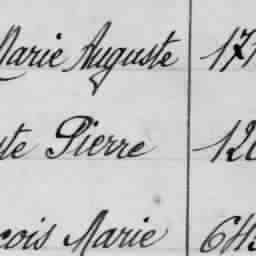 Marie Auguste 171
te Pierre 120
çois Marie 643